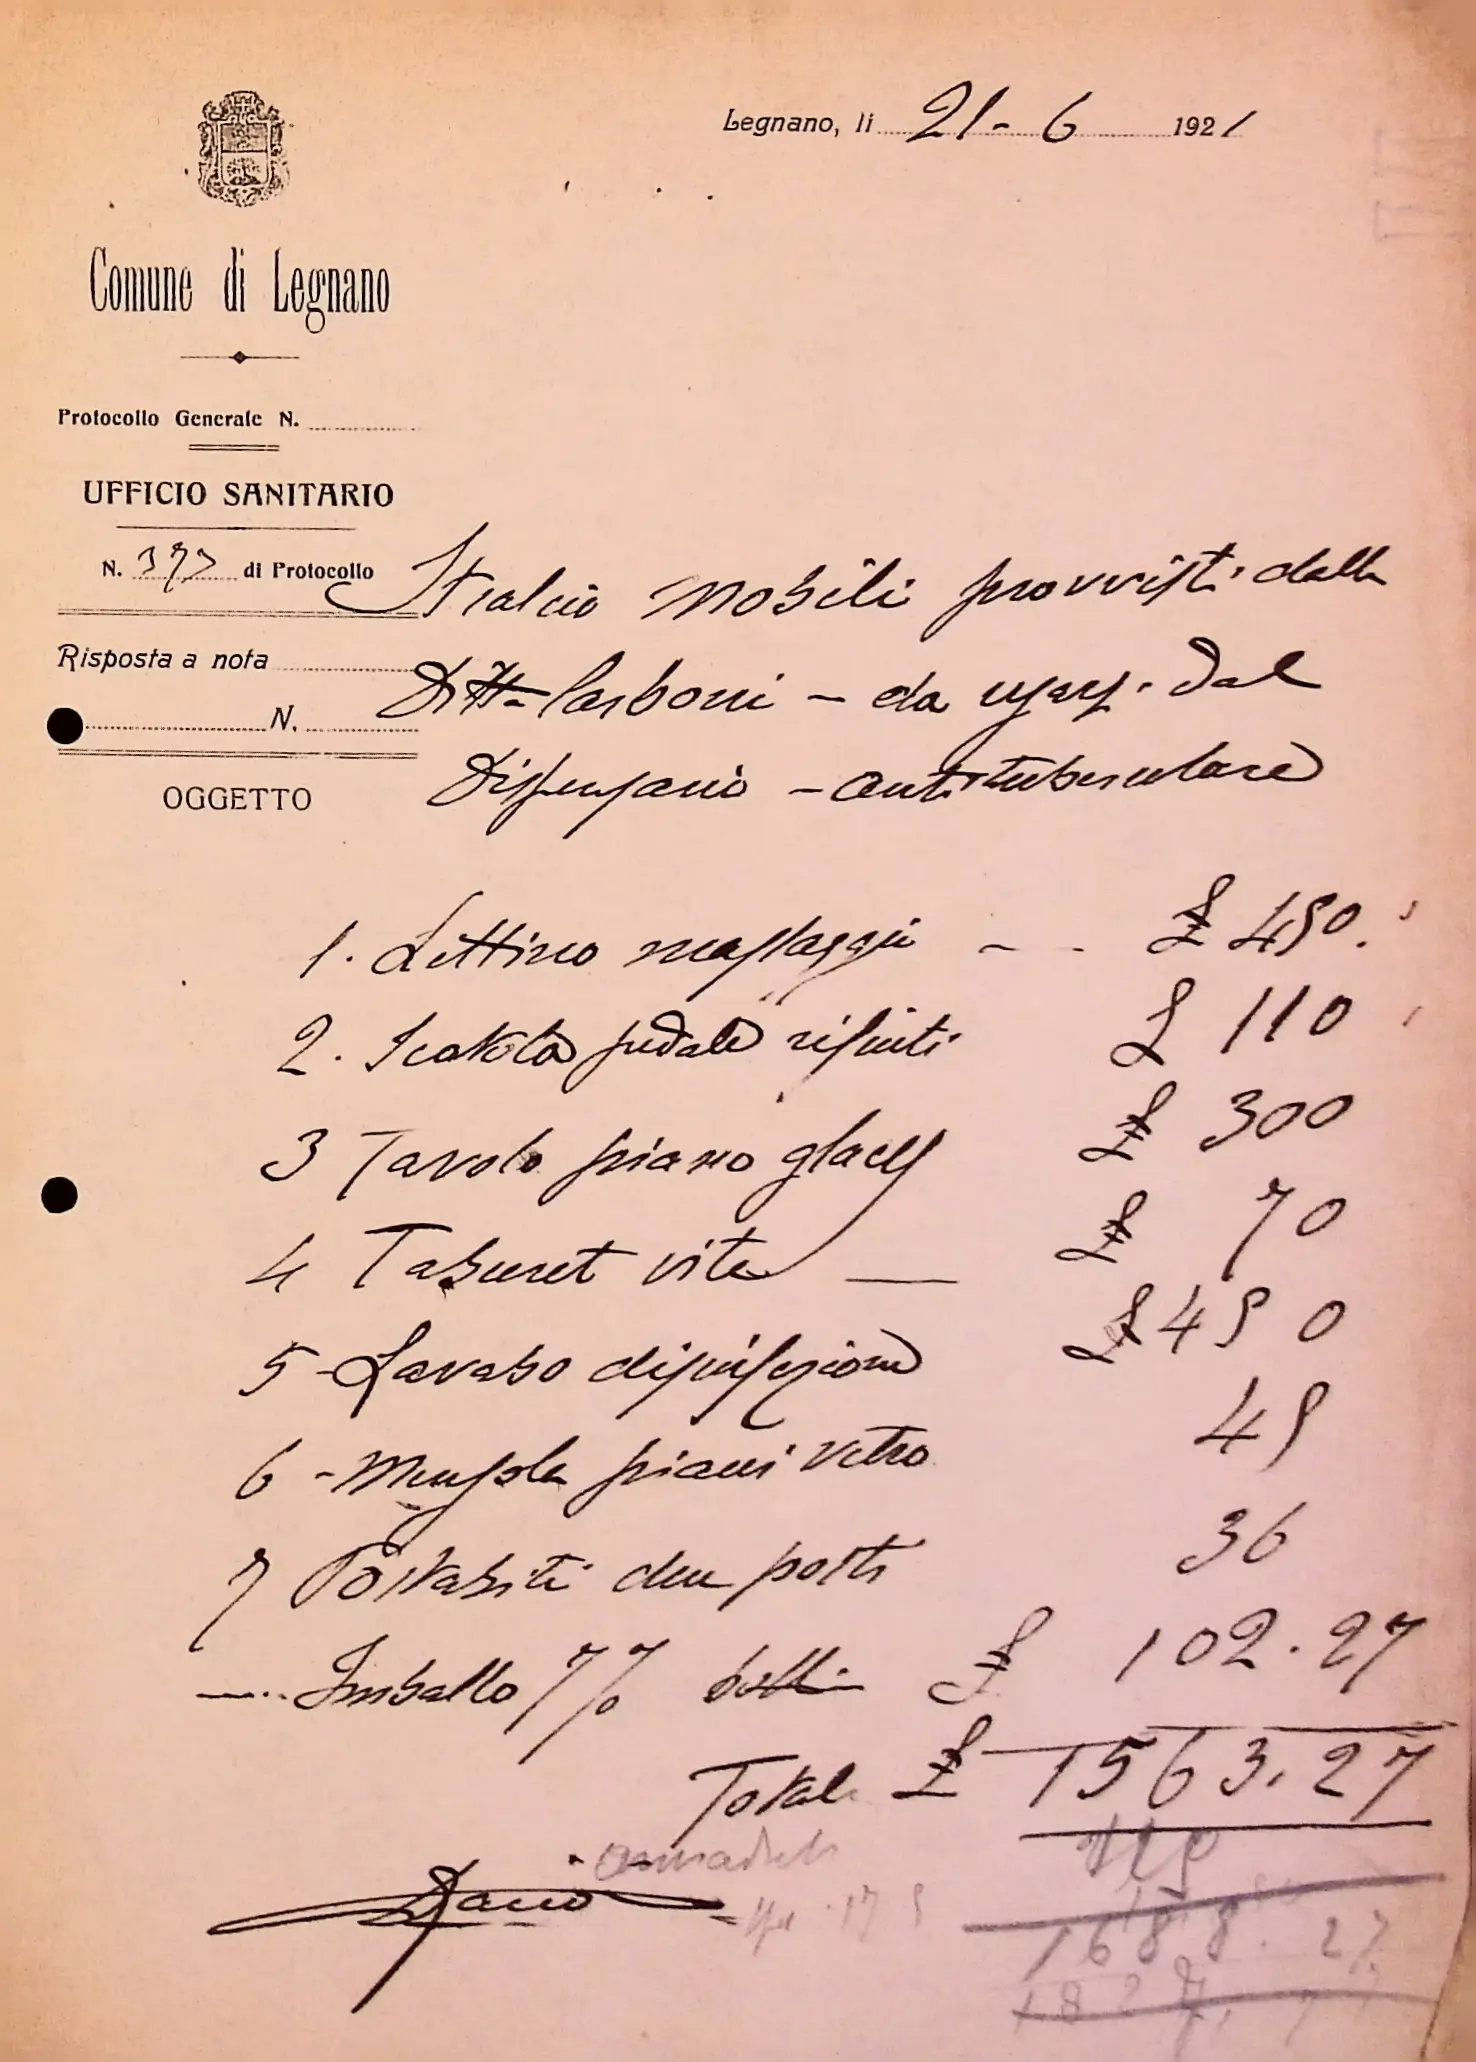 Legnano, li 21-6 1921
Comune di Legnano
Protocollo Generale N.
UFFICIO SANITARIO
N. 377 di Protocollo
Risposta a nota
N.
OGGETTO
Stralcio mobili provvisti dalla
Ditta Carboni - da usarsi dal
Dispensario - antitubercolare
1. Lettino massaggi - - £ 450.
2. Scatola pedale rifiuti £ 110
3 Tavolo piano glace £ 300
4 Taburet vite — £ 70
5 - Lavabo disinfezione £ 450
6 - Mensola piani vetro 45
7 Portabiti due posti 36
— Imballo 7% bolli £ 102.27
Totale £ 1563.27
1688.27